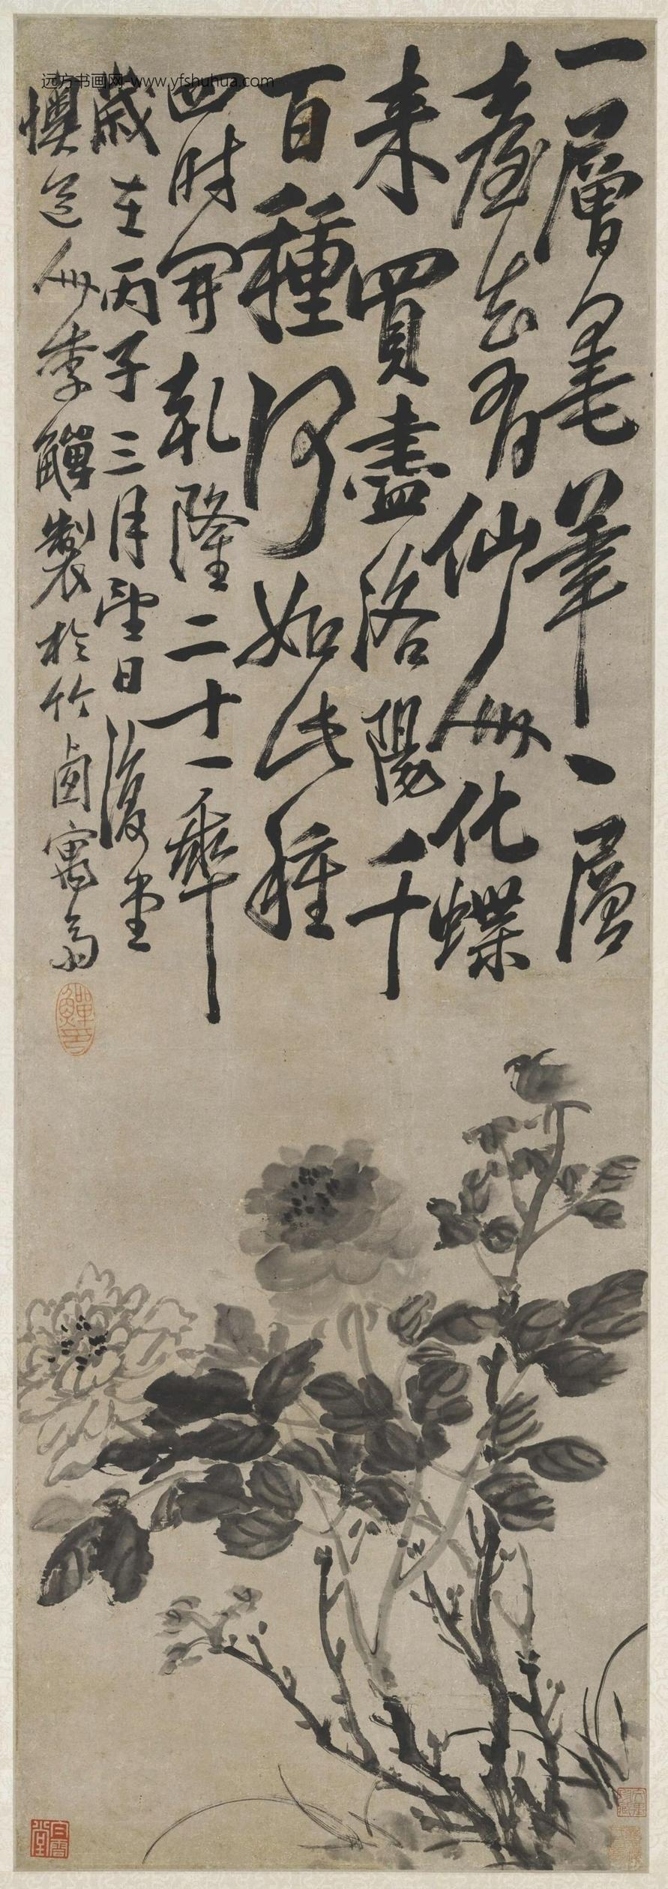 远方书画网-www.yfshuhua.com
一層毫筆一層
臺有仙人化蝶
来買盡洛陽千
百種何如此種
四时開乾隆二十一年
歲在丙子三月望日復堂
懊道人李鱓製於竹寓
鱓印
白雲堂